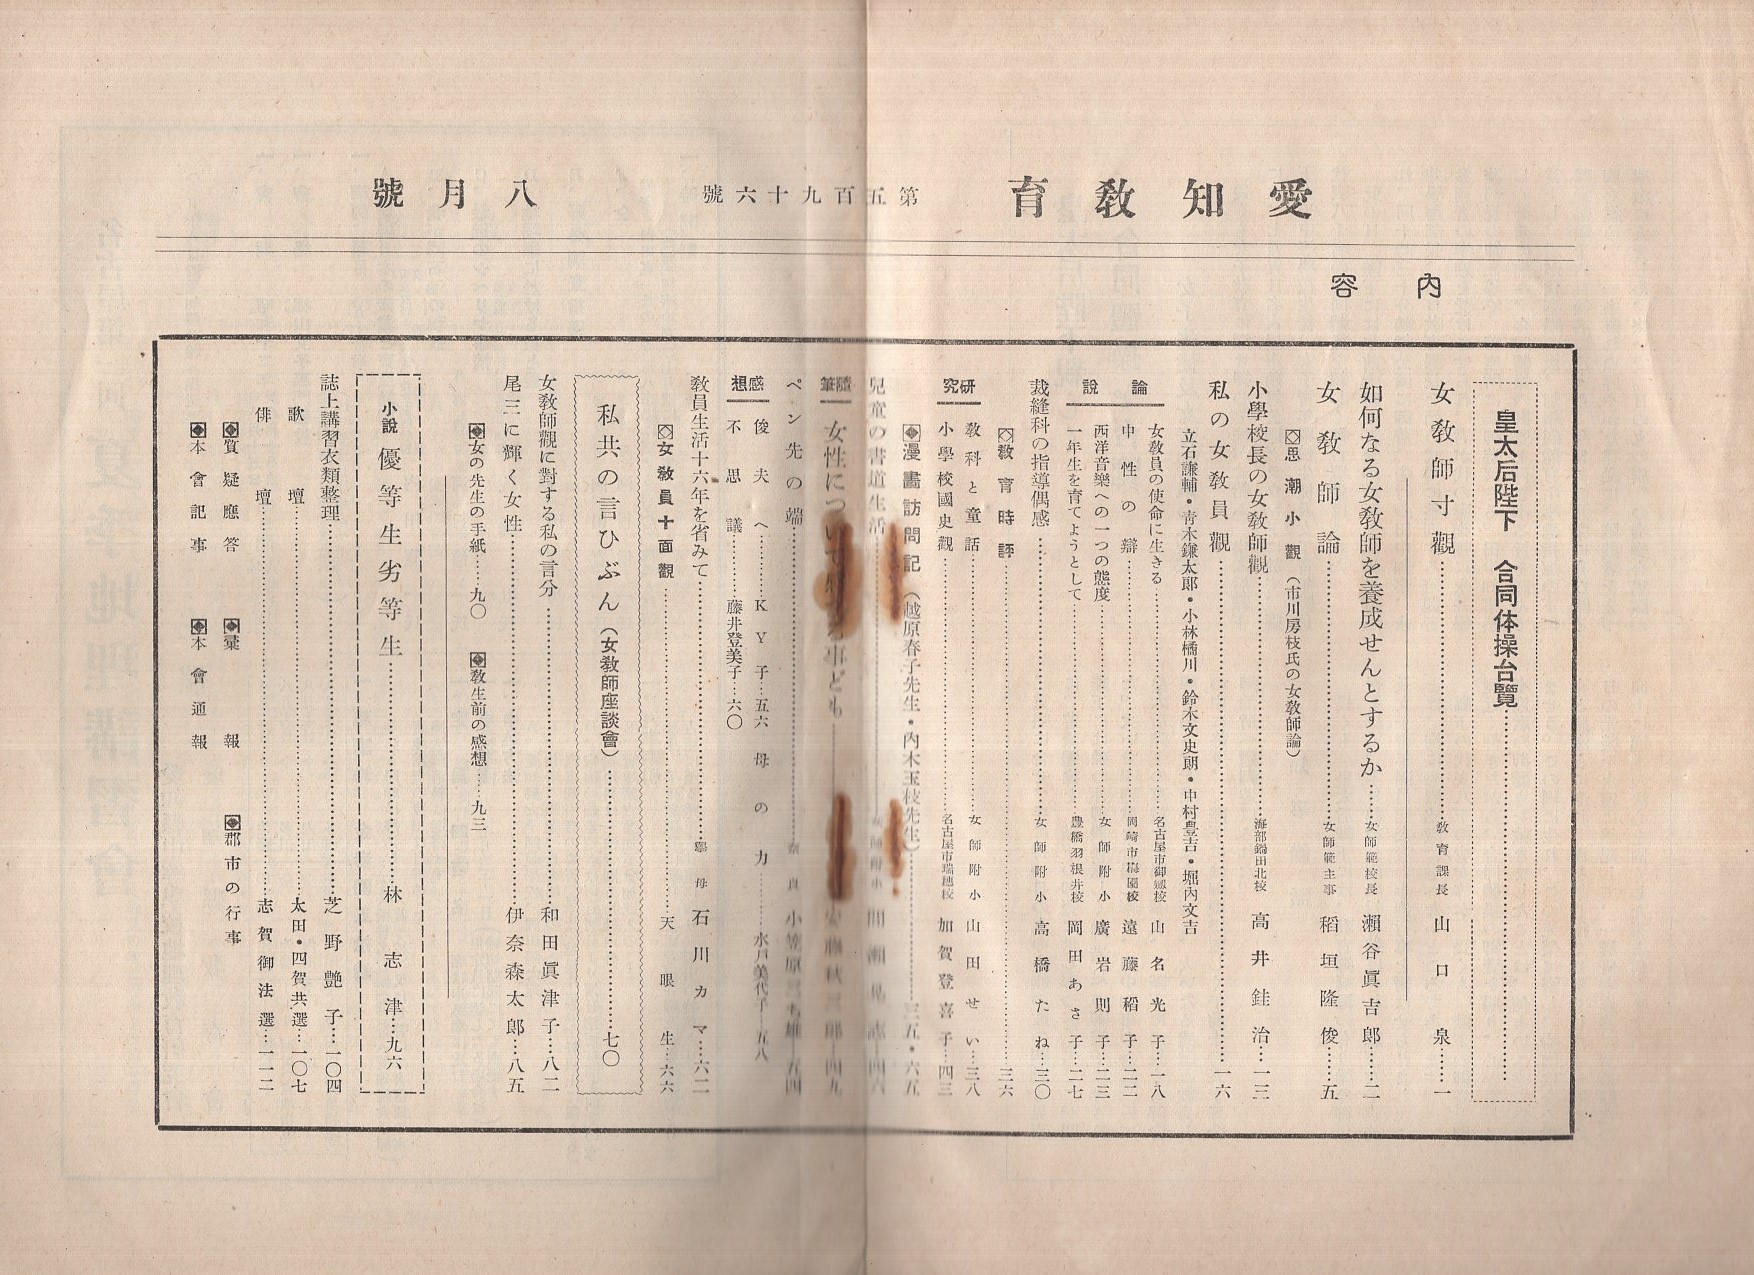 愛知教育
第五百九十六號
八月號
內容
皇太后陛下　合同体操台覽
女教師寸觀……教育課長 山口泉……一
如何なる女教師を養成せんとするか……女師範校長 瀨谷眞吉郎……二
女教師論……女師範主事 稻垣隆俊……五
◇思潮小觀（市川房枝氏の女教師論）
小學校長の女教師觀……海部鍋田北校 高井銈治…一三
私の女教員觀……一六
立石謙輔・青木鎌太郎・小林橘川・鈴木文史朗・中村豊吉・堀內文吉
論說
女教員の使命に生きる……名古屋市御器校 山名光子…一八
中性の辯……岡崎市梅園校 遠藤稻子…二二
西洋音樂への一つの態度……女師附小 廣岩則子…二三
一年生を育てようとして……豊橋羽根井校 岡田あさ子…二七
裁縫科の指導偶感……女師附小 高橋たね…三〇
◇教育時評……三六
研究
教科と童話……女師附小 山田せい…三八
小學校國史觀……名古屋市瑞穗校 加賀登喜子…四三
漫畵訪問記（越原春子先生・內木玉枝先生）……三五・六五
兒童の書道生活……女師附小 間瀨
隨筆
女性について
事ども……四九
ペン先の端……奈良 小笠原三
雄…五四
感想
俊夫へ……KY子…五六
母の力……水戶美代子…五八
不思議……藤井登美子…六〇
教員生活十六年を省みて……擧母 石川カマ…六二
◇女教員十面觀……天眼生…六六
私共の言ひぶん（女教師座談會）……七〇
女教師觀に對する私の言分……和田眞津子…八二
尾三に輝く女性……伊奈森太郎…八五
女の先生の手紙……九〇
教生前の感想……九三
小說 優等生劣等生……林志津…九六
誌上講習衣類整理……芝野艶子…一〇四
歌壇……太田・四賀共選…一〇七
俳壇……志賀御法選…一一二
質疑應答
彙報
郡市の行事
本會記事
本會通報